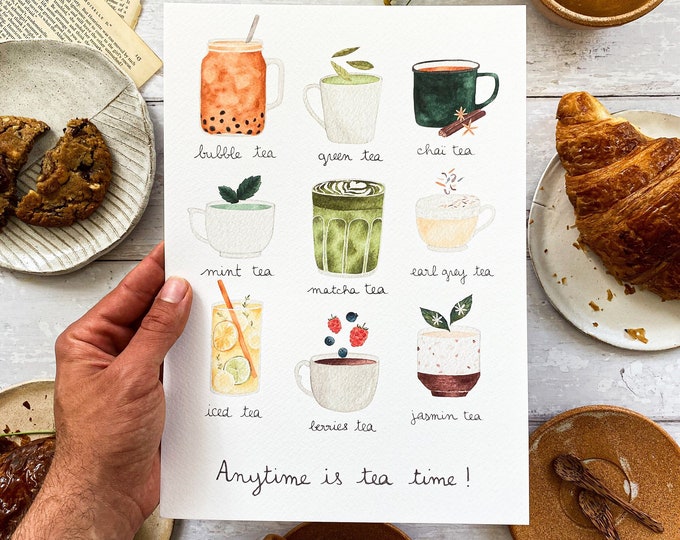 bubble tea
green tea
chai tea
mint tea
matcha tea
earl grey tea
iced tea
berries tea
jasmin tea
Anytime is tea time!